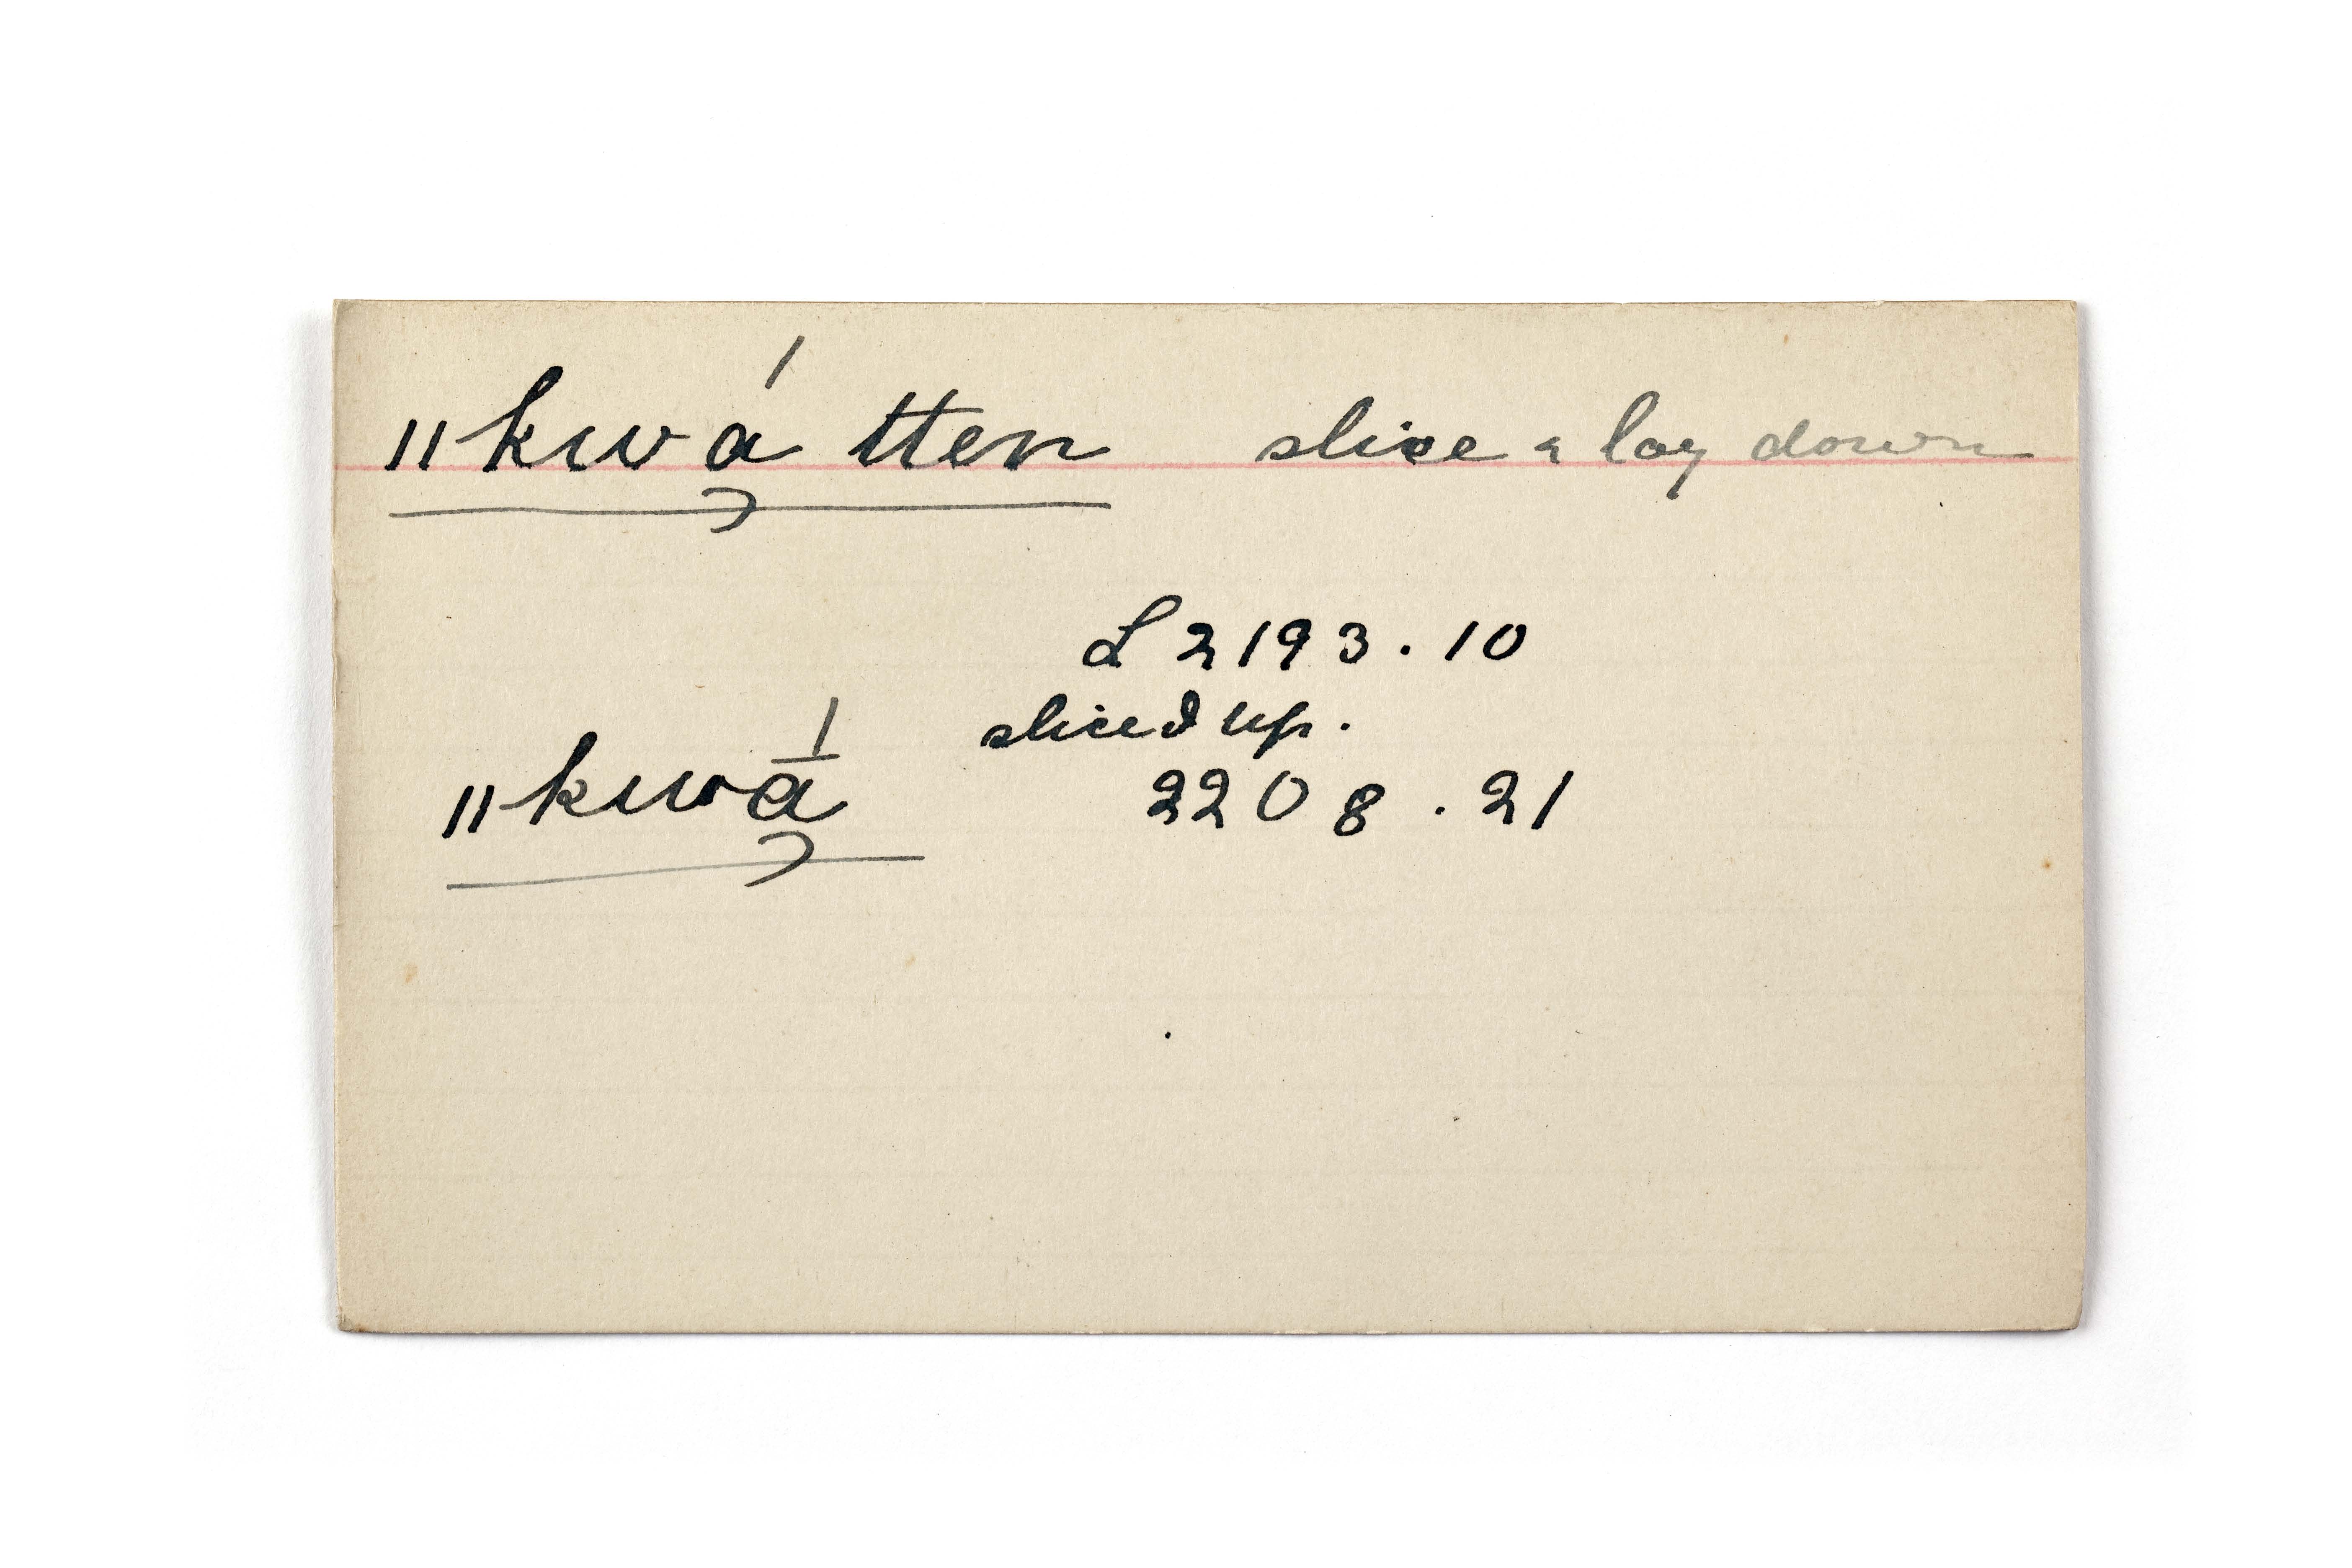 ǁkwá̱ tten slice & lay down
L 2193.10
sliced up.
ǁkwā̱́ 2208.21